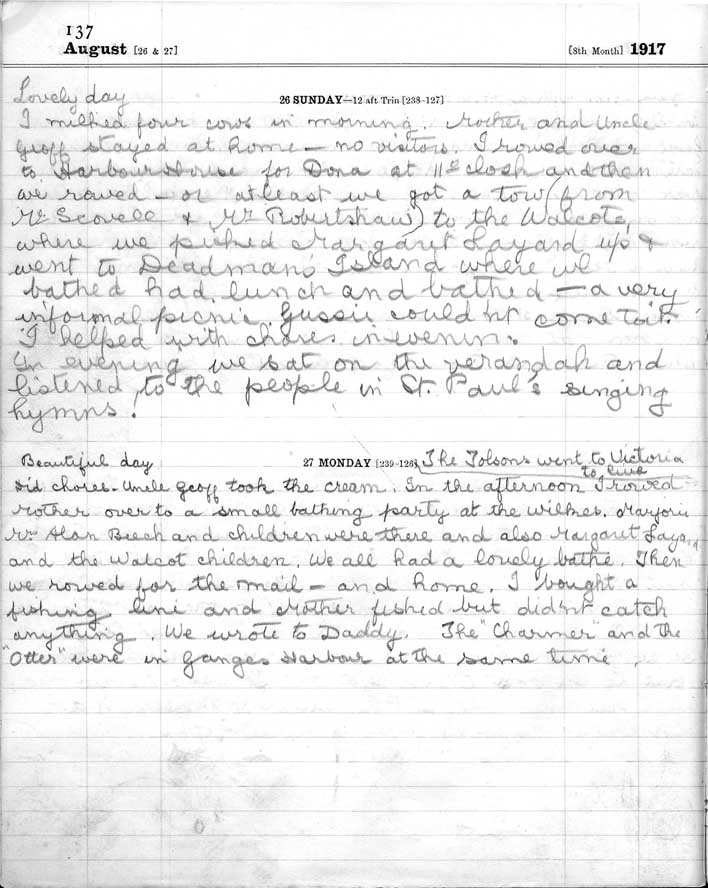 137
August [26 & 27] [8th Month] 1917
Lovely day 26 SUNDAY—12 aft Trin [238-127]
I milked four cows in morning. Mother and Uncle
Geoff stayed at home – no visitors. I rowed over
to Harbour House for Dona at 11 o'clock and then
we rowed – or at least we got a tow (from
Mr Scovell & Mr Robertshaw) to the Walcots,
where we picked Margaret Layard up &
went to Deadman's Island where we
bathed had lunch and bathed – a very
informal picnic. Gussie couldn't come to it.
I helped with chores in evenin.
In evening we sat on the verandah and
listened to the people in St. Paul's singing
hymns.
Beautiful day 27 MONDAY [239-126] The Tolsons went to Victoria
to live
Did chores. Uncle Geoff took the cream. In the afternoon I rowed
Mother over to a small bathing party at the Wilkes. Marjorie
Mrs Alan Beech and children were there and also Margaret Laya
and the Walcot children. We all had a lovely bathe. Then
we rowed for the mail – and home. I bought a
fishing line and Mother fished but didn't catch
anything. We wrote to Daddy. The "Charmer" and the
"Otter" were in Ganges Harbour at the same time.